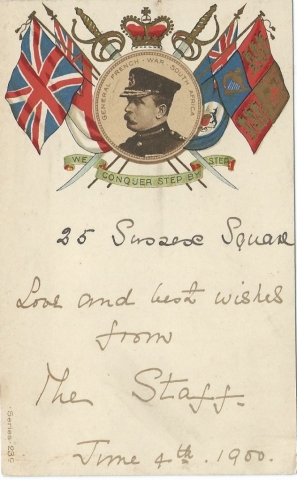 GENERAL FRENCH - WAR - SOUTH - AFRICA
WE CONQUER STEP BY STEP
25 Sussex Square
Love and best wishes
from
The Staff.
June 4th. 1900.
Series 239